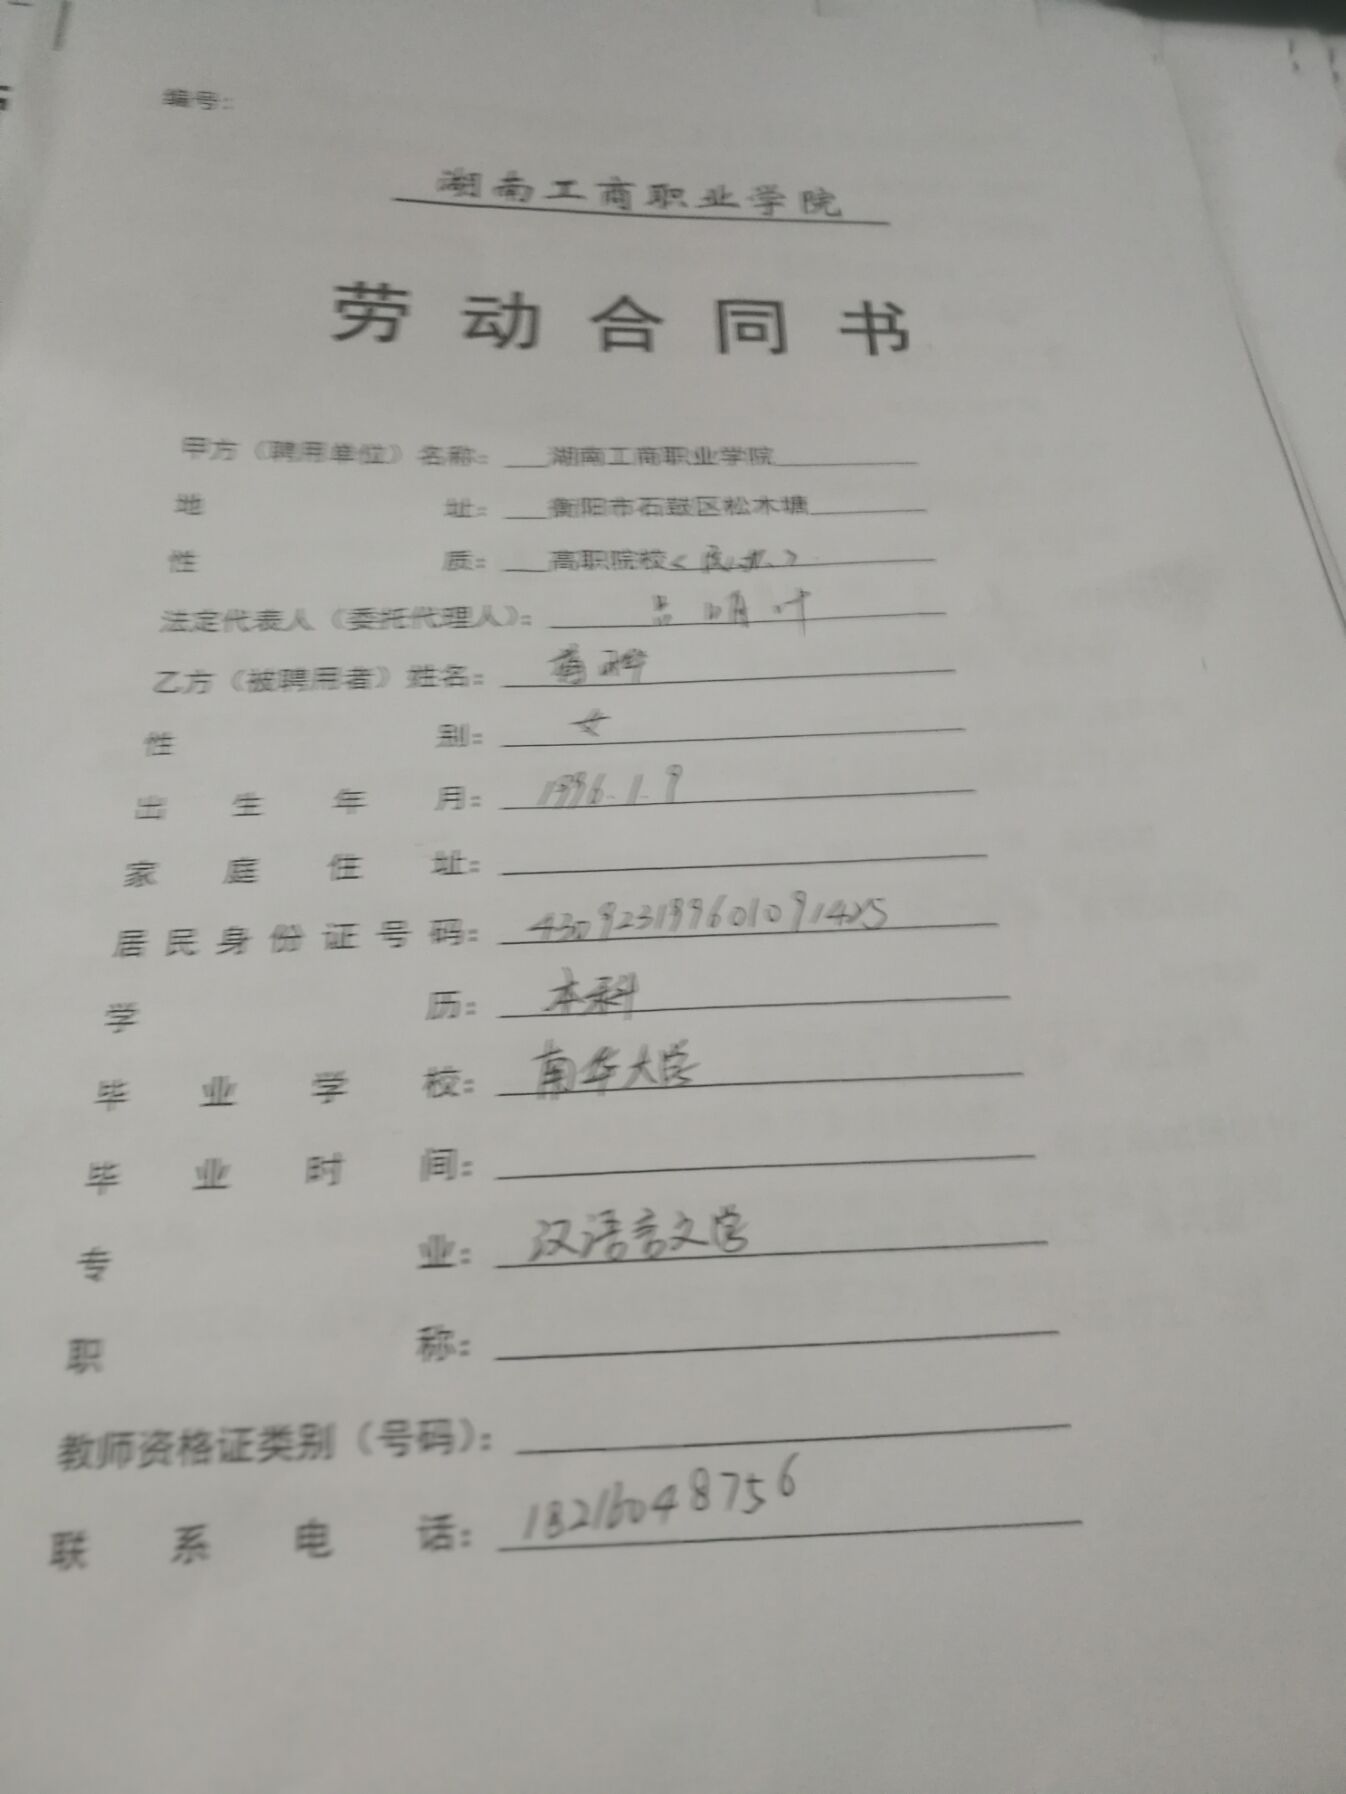 编号：
湖南工商职业学院
劳动合同书
甲方（聘用单位）名称： 湖南工商职业学院
地址： 衡阳市石鼓区松木塘
性质： 高职院校<民办>
法定代表人（委托代理人）： 明叶
乙方（被聘用者）姓名： 蒋
性别： 女
出生年月： 1996.1.9
家庭住址：
居民身份证号码： 430923199601091425
学历： 本科
毕业学校： 南华大学
毕业时间：
专业： 汉语言文学
职称：
教师资格证类别（号码）：
联系电话： 18216048756